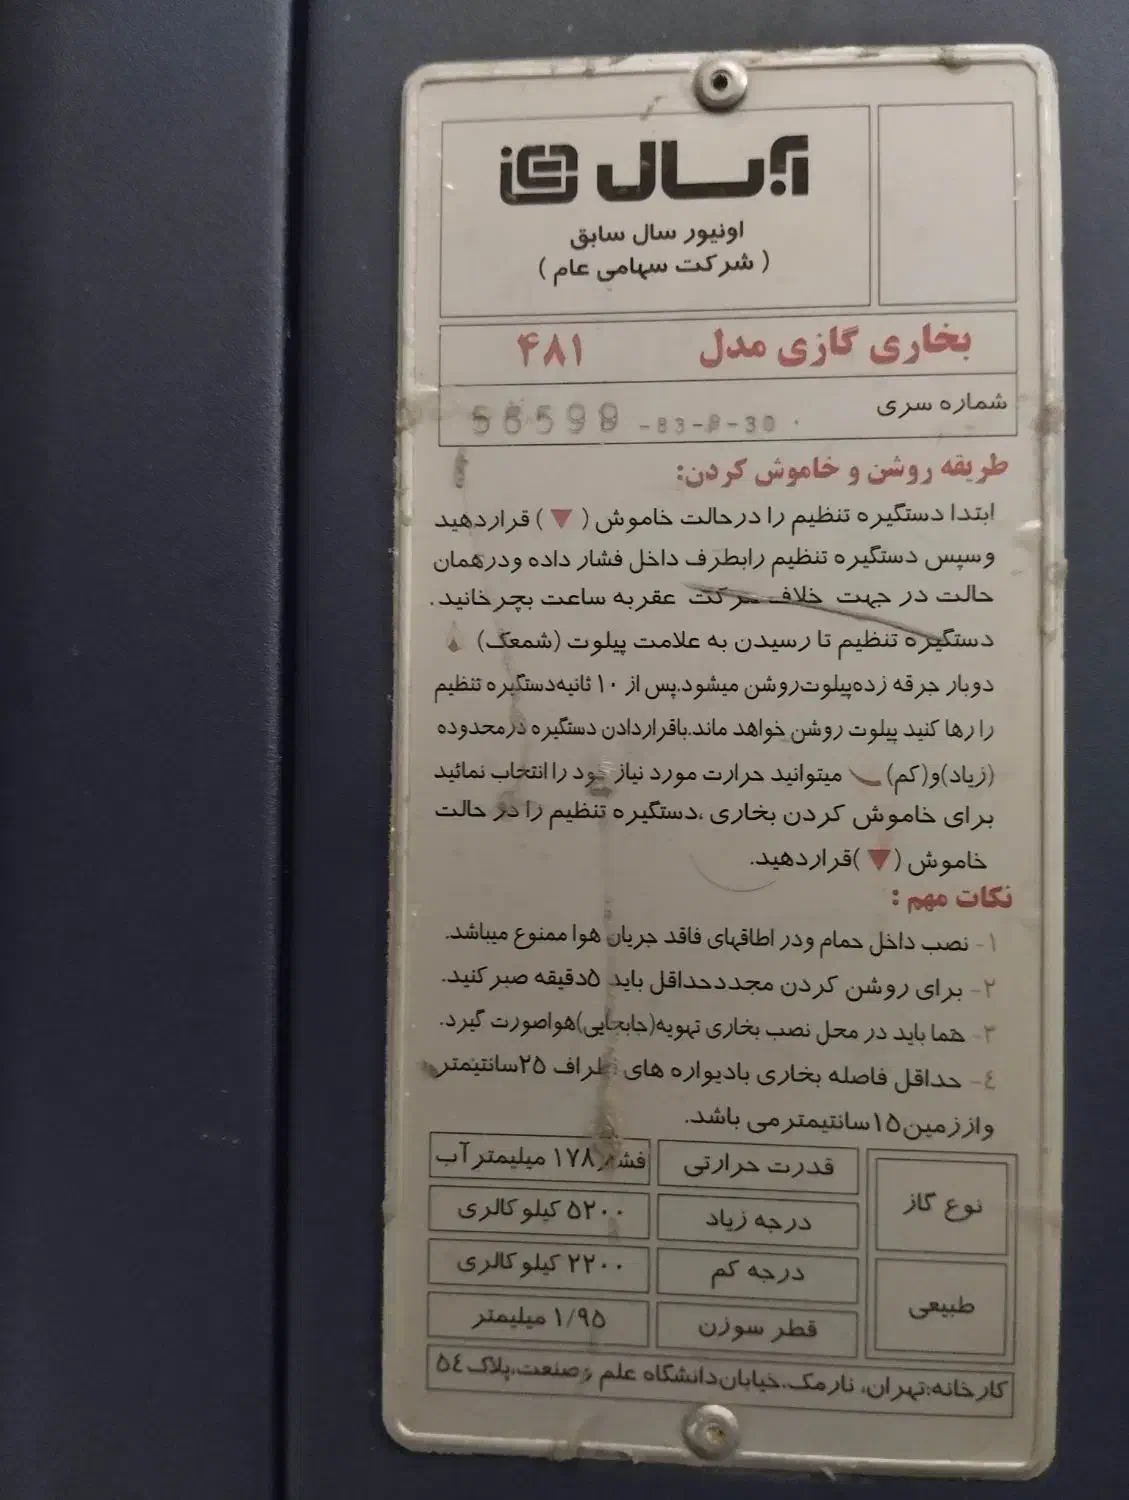 آبسال
اونیور سال سابق
( شرکت سهامی عام )
بخاری گازی مدل ۴۸۱
شماره سری
طریقه روشن و خاموش کردن:
ابتدا دستگیره تنظیم را درحالت خاموش (▼) قراردهید
وسپس دستگیره تنظیم رابطرف داخل فشار داده ودرهمان
حالت در جهت خلاف حرکت عقربه ساعت بچرخانید.
دستگیره تنظیم تا رسیدن به علامت پیلوت (شمعک)
دوبار جرقه زده‌پیلوت‌روشن میشود.پس از ۱۰ ثانیه‌دستگیره تنظیم
را رها کنید پیلوت روشن خواهد ماند.باقراردادن دستگیره درمحدوده
(زیاد)و(کم) میتوانید حرارت مورد نیاز خود را انتخاب نمائید
برای خاموش کردن بخاری ،دستگیره تنظیم را در حالت
خاموش (▼)قراردهید.
نکات مهم :
۱- نصب داخل حمام ودر اطاقهای فاقد جریان هوا ممنوع میباشد.
۲- برای روشن کردن مجددحداقل باید ۵دقیقه صبر کنید.
۳- حتما باید در محل نصب بخاری تهویه(جابجایی)هواصورت گیرد.
٤- حداقل فاصله بخاری بادیواره های اطراف ۲۵سانتیمتر
واززمین۱۵سانتیمترمی باشد.
نوع گاز
طبیعی
قدرت حرارتی فشار ۱۷۸ میلیمتر آب
درجه زیاد ۵۲۰۰ کیلو کالری
درجه کم ۲۲۰۰ کیلو کالری
قطر سوزن ۱/۹۵ میلیمتر
کارخانه:تهران، نارمک،خیابان‌دانشگاه علم وصنعت،پلاک ۵٤